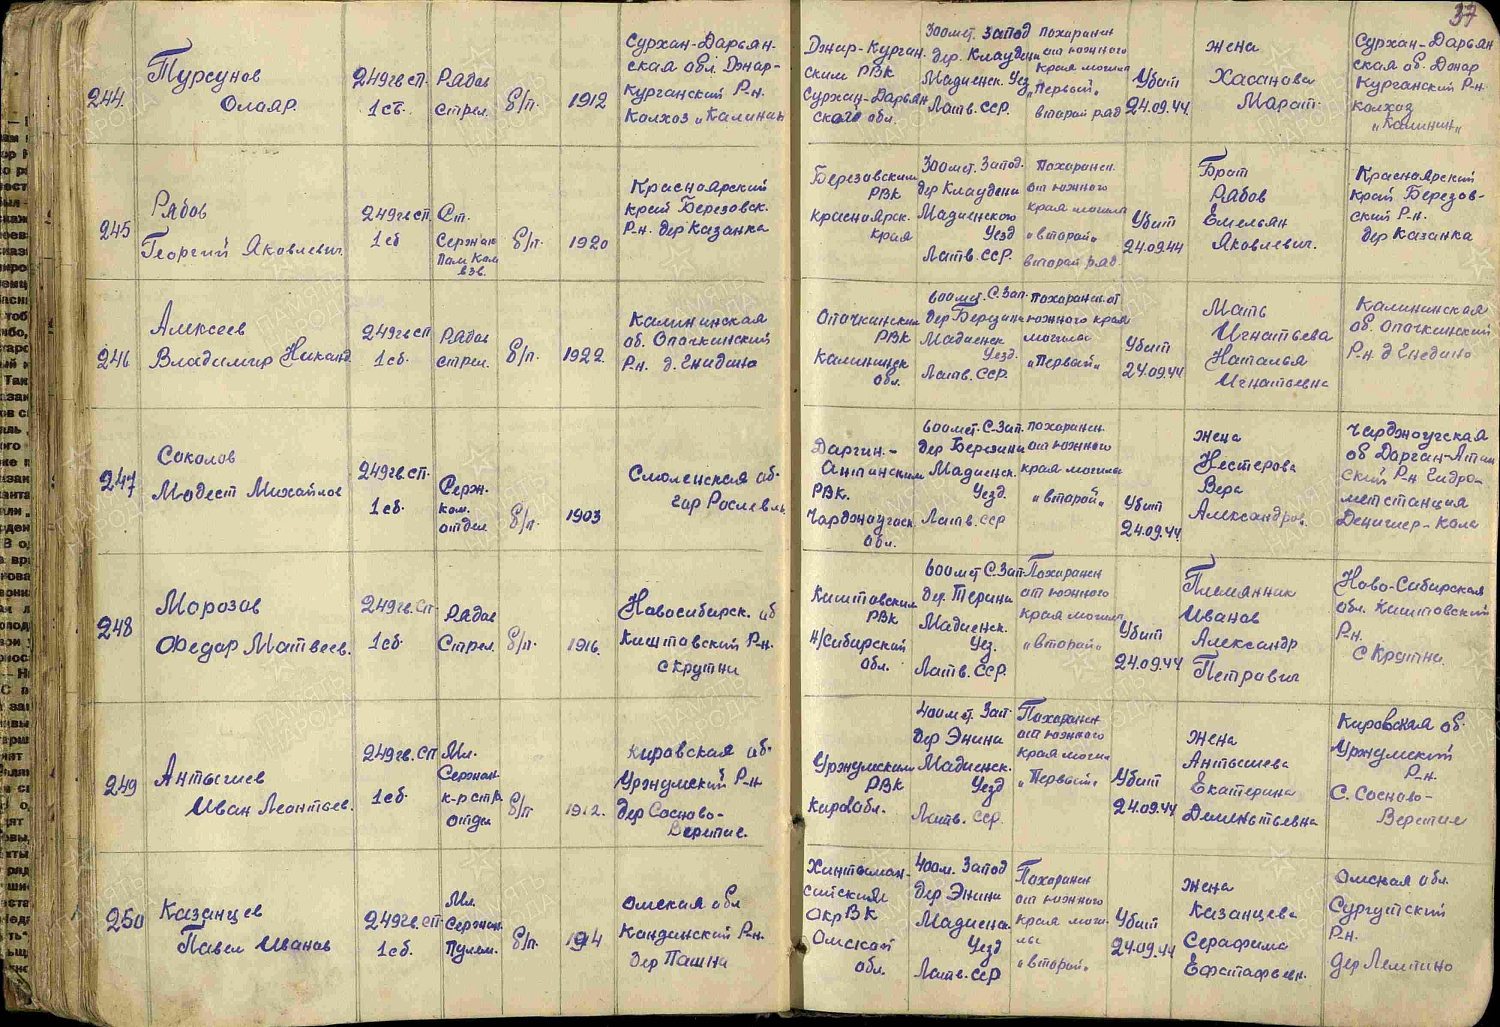 37
244.
Турсунов
Олаяр.
249 гв сп.
1 сб.
Рядов
Стрел.
б/п.
1912
Сурхан-Дарьян-
ская обл. Джар-
Курганский Р-н.
Колхоз „Калинин
Джар-Курган.
ским РВК
Сурхан-Дарьян
ской обл.
300 мет. Запад
дер. Клаудени
Мадиенск. Уезд
Латв. ССР.
Похоронен
от южного
края могил
„Первый„
второй ряд
Убит
24.09.44.
жена
Хасанова
Марат.
Сурхан-Дарьян
ская об. Джар
Курганский Р-н.
колхоз
„Калинин„
245
Рябов
Георгий Яковлевич.
249 гв сп.
1 сб
Ст.
Сержан
Пом Ком
взв.
б/п.
1920
Красноярский
край Березовск.
Р-н. дер Казанка
Березовским
РВК
Красноярск.
края
300 мет. Запад.
дер Клаудени
Мадиенского
Уезд
Латв. ССР.
Похоронен.
от южного
края могилы
„второй„
второй ряд.
Убит
24.09.44
Брат
Рябов
Емельян
Яковлевич.
Красноярский
край Березов-
ский Р-н.
дер Казанка
246
Алексеев
Владимир Никанд
249 гв сп
1 сб.
Рядов
стрел.
б/п.
1922.
Калининская
об. Опочкинский
Р-н. д. Енидино
Опочкинским
РВК
Калининск
обл.
600 мет. С. Зап.
дер Берзини
Мадиенск
Уезд.
Латв. ССР.
Похоронен от
южного края
могилы
„Первый„
Убит
24.09.44
Мать
Игнатьева
Наталья
Игнатьевна
Калининская
об. Опочкинский
Р-н. д Енедино
247
Соколов
Модест Михайлов
249 гв сп.
1 сб.
Серж.
ком.
отдел.
б/п.
1903
Смоленская об.
гор Рославль.
Дарган.-
Антинским
РВК.
Чарджоугск.
обл.
600 мет. С-Зап.
дер Берзини
Мадиенск.
Уезд.
Латв. ССР
Похоронен.
от южного
края могилы
„второй„
Убит
24.09.44.
жена
Нестерова
Вера
Александров.
Чарджоугская
об Дарган-Атин
ский Р-н Гидро-
метстанция
248
Морозов
Федор Матвеев.
249 гв. сп
1 сб.
Рядов
Стрел.
б/п.
1916.
Новосибирск. об
Киштовский Р-н.
с Крутни
Киштовским
РВК
Н/Сибирский
обл.
600 мет С. Зап.
дер. Терини
Мадиенск.
Уез.
Латв. ССР.
Похоронен
от южного
края могил
„второй„
Убит
24.09.44
Племянник
Иванов
Александр
Петрович
Ново-Сибирская
обл. Киштовский
Р-н.
с Крутни.
249
Антышев
Иван Леонтьев.
249 гв. сп
1 сб.
Мл.
Сержан.
к-р стр.
отдел
б/п
1912.
Кировская об.
Уржумский Р-н
дер Сосново-
Веретие.
Уржумским
РВК
Кировобл.
400 мет. Зап.
дер Энини
Мадиенск.
Уезд
Латв. ССР.
Похоронен
от южного
края могил
„Первый„
Убит
24.09.44
жена
Антышева
Екатерина
Дементьевна
Кировская об.
Уржумский
Р-н.
с. Сосново-
Веретие
250
Казанцев
Павел Иванов
249 гв. сп
1 сб.
Мл.
Сержан.
Пулем.
б/п.
1914
Омская обл
Кондинский Р-н.
дер Пашни
Ханты-ман-
сийским
Окр ВК
Омской
обл.
400 м. Запад
дер Энини
Мадиенск.
Уезд
Латв. ССР
Похоронен
от южного
края моги-
лы
„второй„
Убит
24.09.44
жена
Казанцева
Серафима
Евстафьевн.
Омская обл.
Сургутский
Р-н.
дер Лемпино